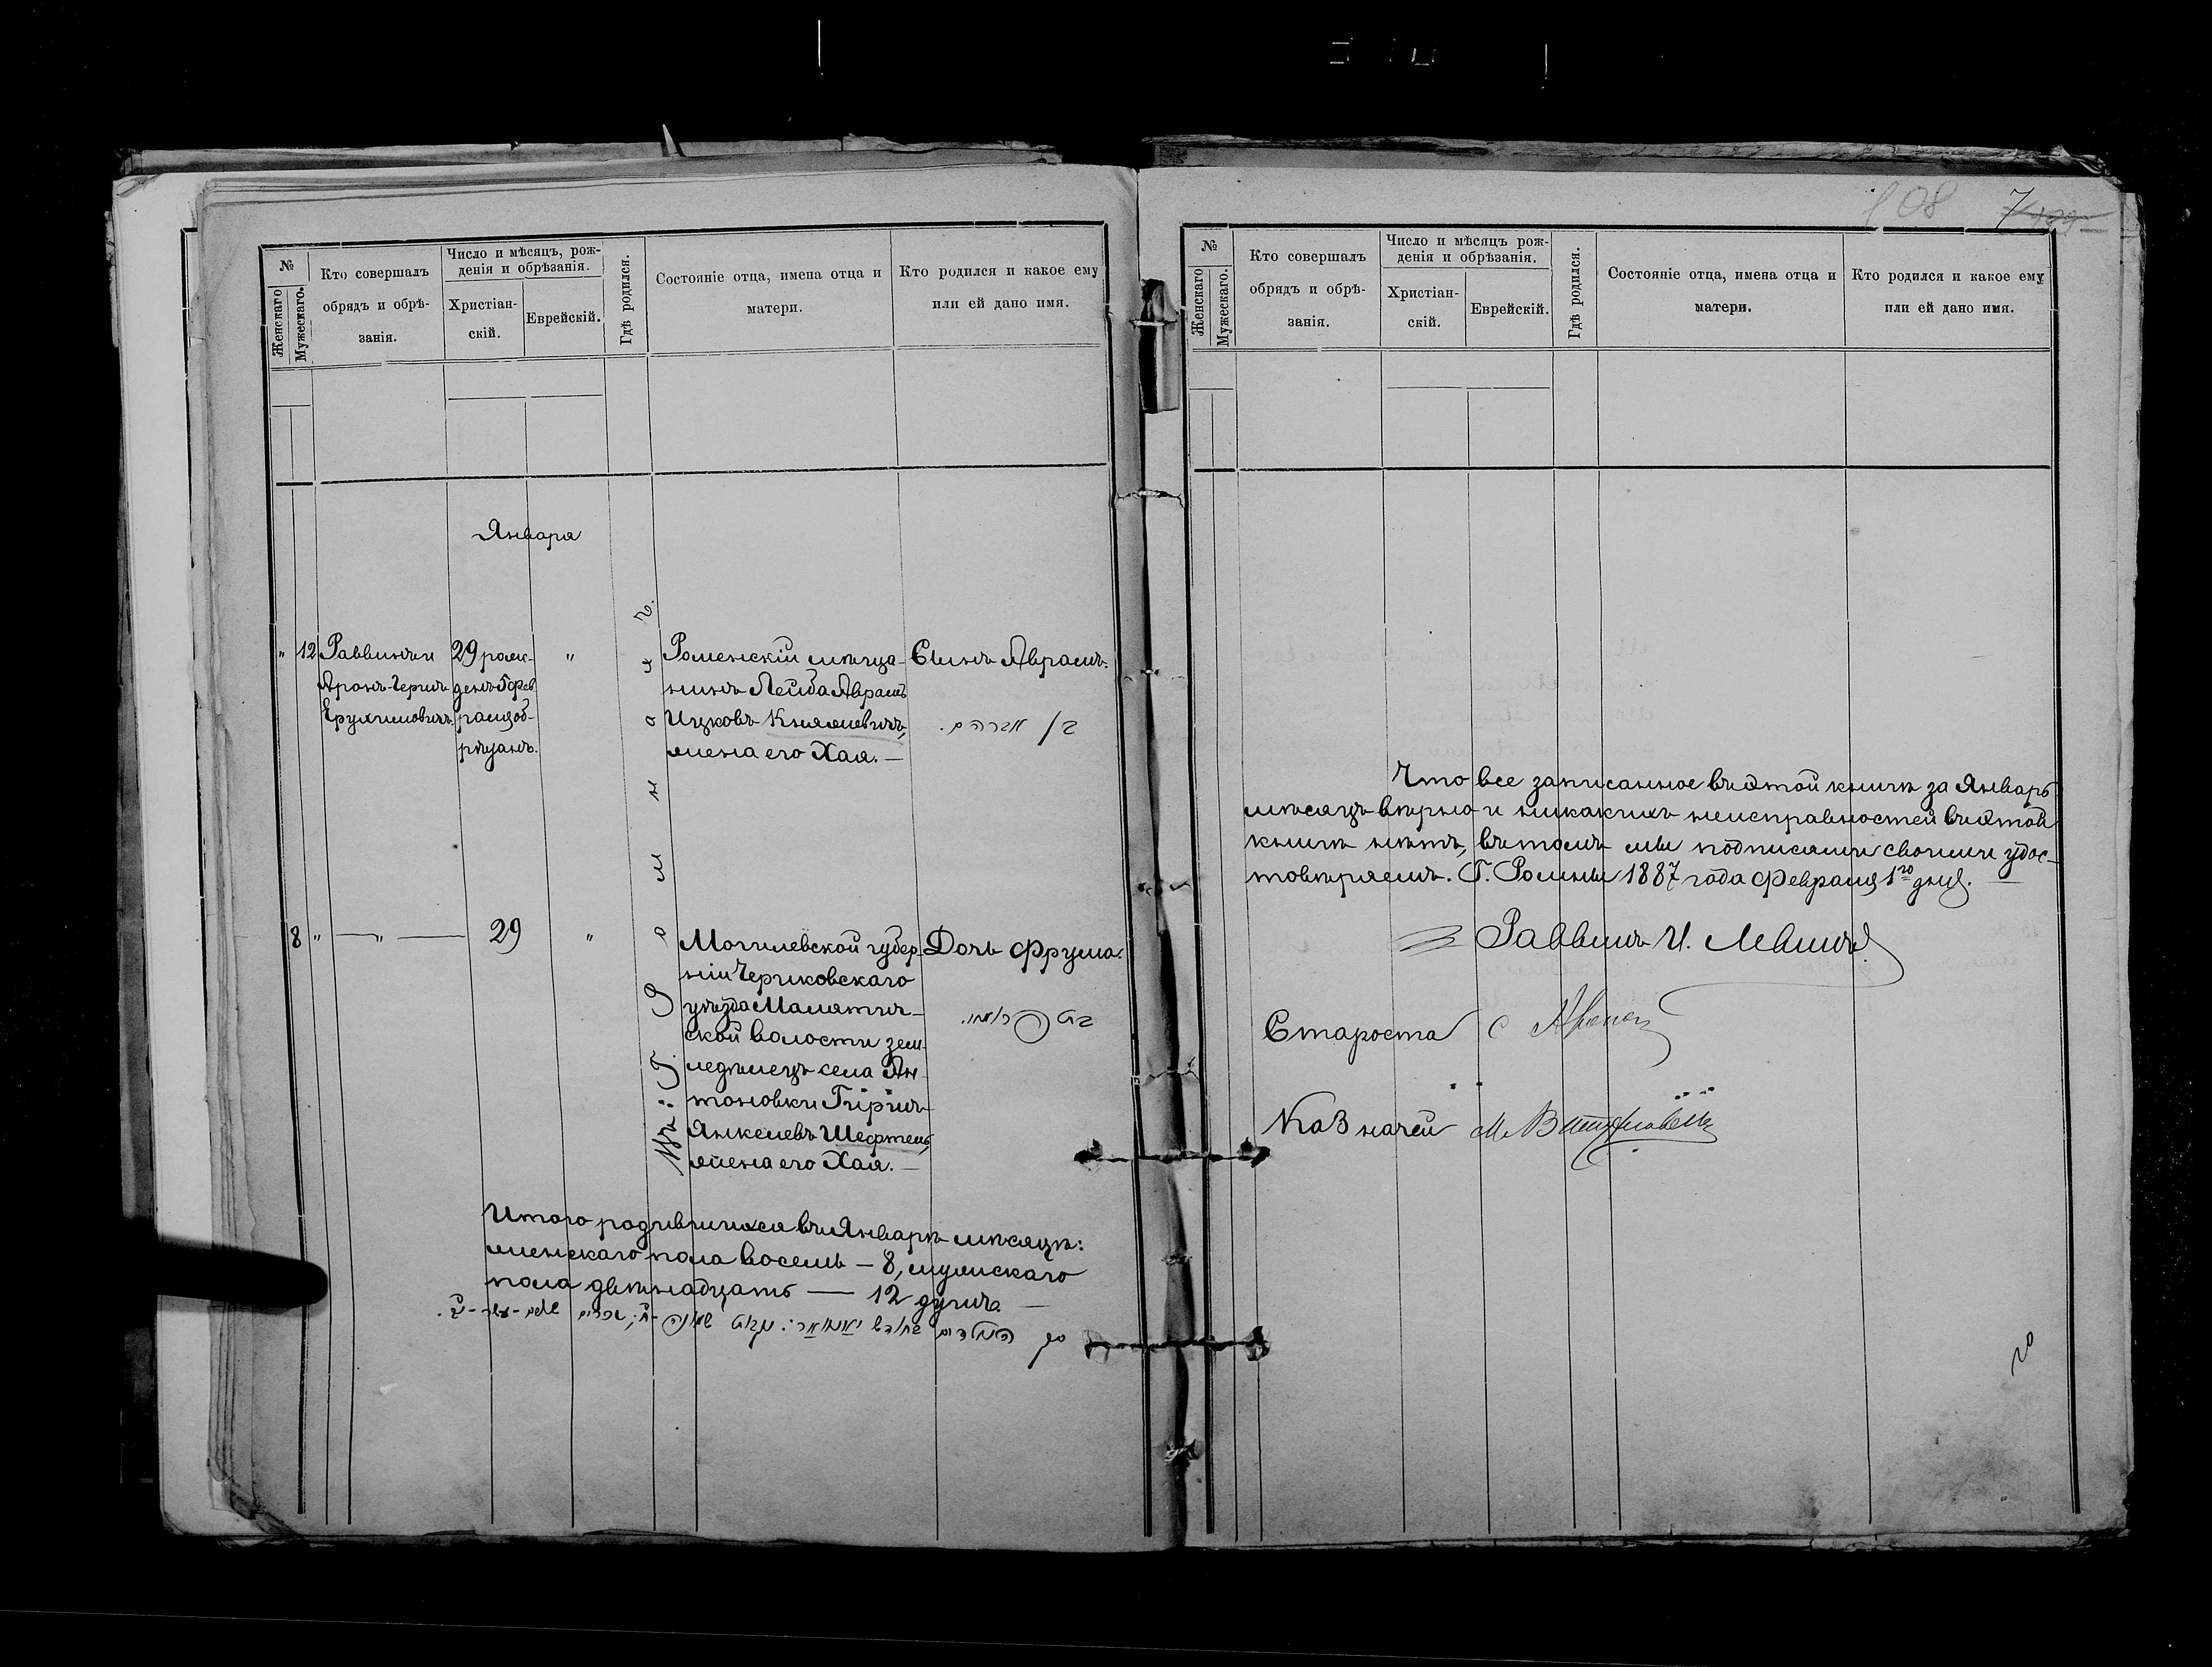 №
Женскаго
Мужескаго.
Кто совершалъ
обрядъ и обрѣ-
занія.
Число и мѣсяцъ, рож-
денія и обрѣзанія.
Христіан-
скій.
Еврейскій.
Гдѣ родился.
Состояніе отца, имена отца и
матери.
Кто родился и какое ему
или ей дано имя.
Января
" 12
Раввинъ и
Аронъ-Герцъ
Ерухимовичъ
29 рож-
денъ 5 фев
раля об-
рѣзанъ.
"
Въ Г. Ромнахъ.
Роменскій мѣща-
нинъ Лейба Аврамъ
Ицковъ Княжевичъ,
жена его Хая. —
Сынъ Аврамъ.
ב/ אברהם.
8 "
— " —
29
"
Могилевской губер-
ніи Чериковскаго
уѣзда Малятич-
ской волости зем-
ледѣлецъ села Ан-
тоновки Гиршъ
Янкелевъ Шефтель,
жена его Хая. —
Дочь Фрума.
בת פרומא.
Итого родившихся въ Январѣ мѣсяцѣ:
женскаго пола восемь — 8, мужскаго
пола двѣнадцать — 12 душъ. —
108
7
№
Женскаго
Мужескаго.
Кто совершалъ
обрядъ и обрѣ-
занія.
Число и мѣсяцъ рож-
денія и обрѣзанія.
Христіан-
скій.
Еврейскій.
Гдѣ родился.
Состояніе отца, имена отца и
матери.
Кто родился и какое ему
или ей дано имя.
Что все записанное въ этой книгѣ за Январь
мѣсяцъ вѣрно и никакихъ неисправностей въ этой
книгѣ нѣтъ, въ томъ мы подписями своими удос-
товѣряемъ. Г. Ромны 1887 года февраля 1го дня. —
Раввинъ И. Левинъ
Староста
Казначей М.